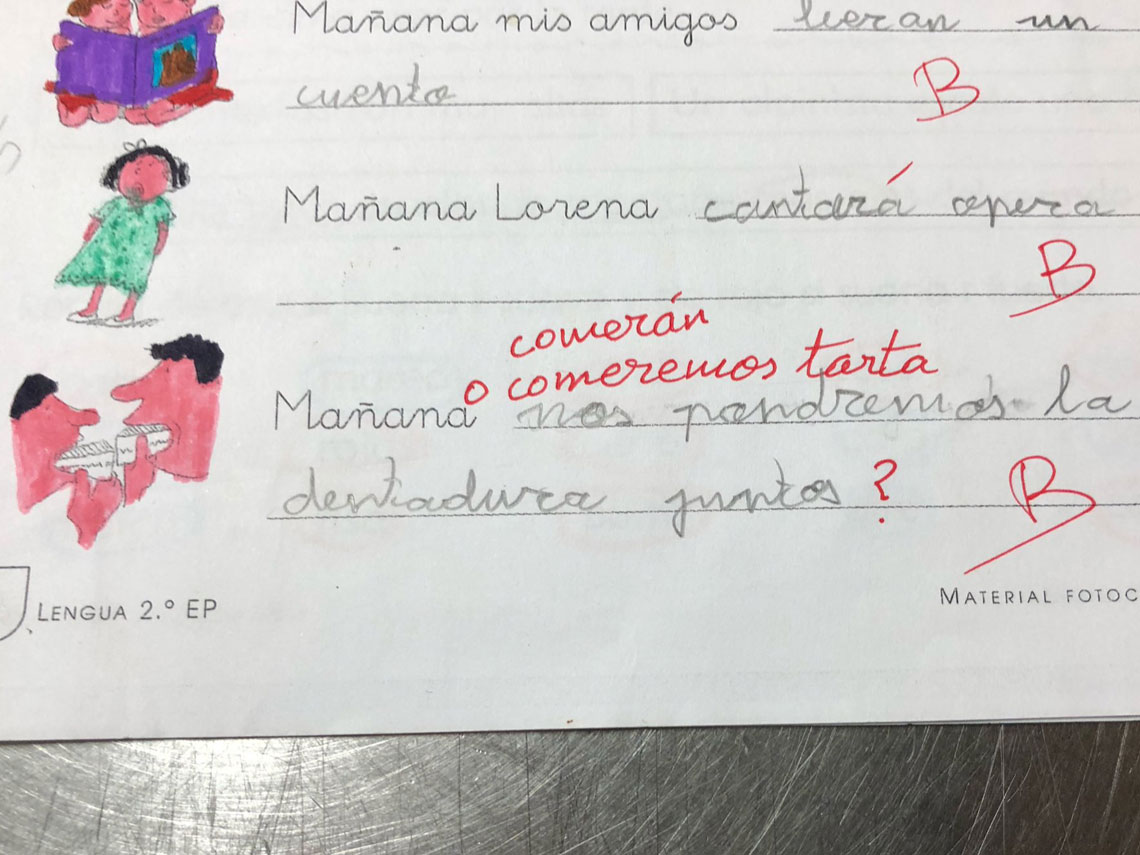 Mañana mis amigos leeran un
cuento
B
Mañana Lorena cantará opera
B
comerán
o comeremos tarta
Mañana nos pondremos la
dentadura juntos ?
B
LENGUA 2.º EP
MATERIAL FOTOC